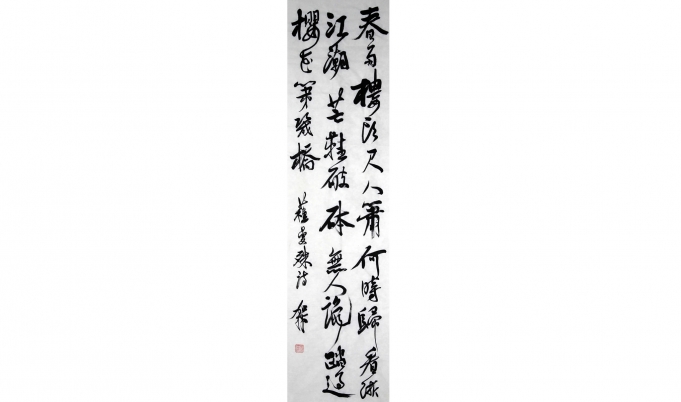 春雨樓頭尺八簫何時歸看浙
江潮芒鞋破砵無人識踏過
櫻花第幾橋
蘇曼殊詩